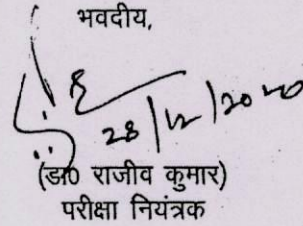 भवदीय,
28/12/2020
(डा0 राजीव कुमार)
परीक्षा नियंत्रक